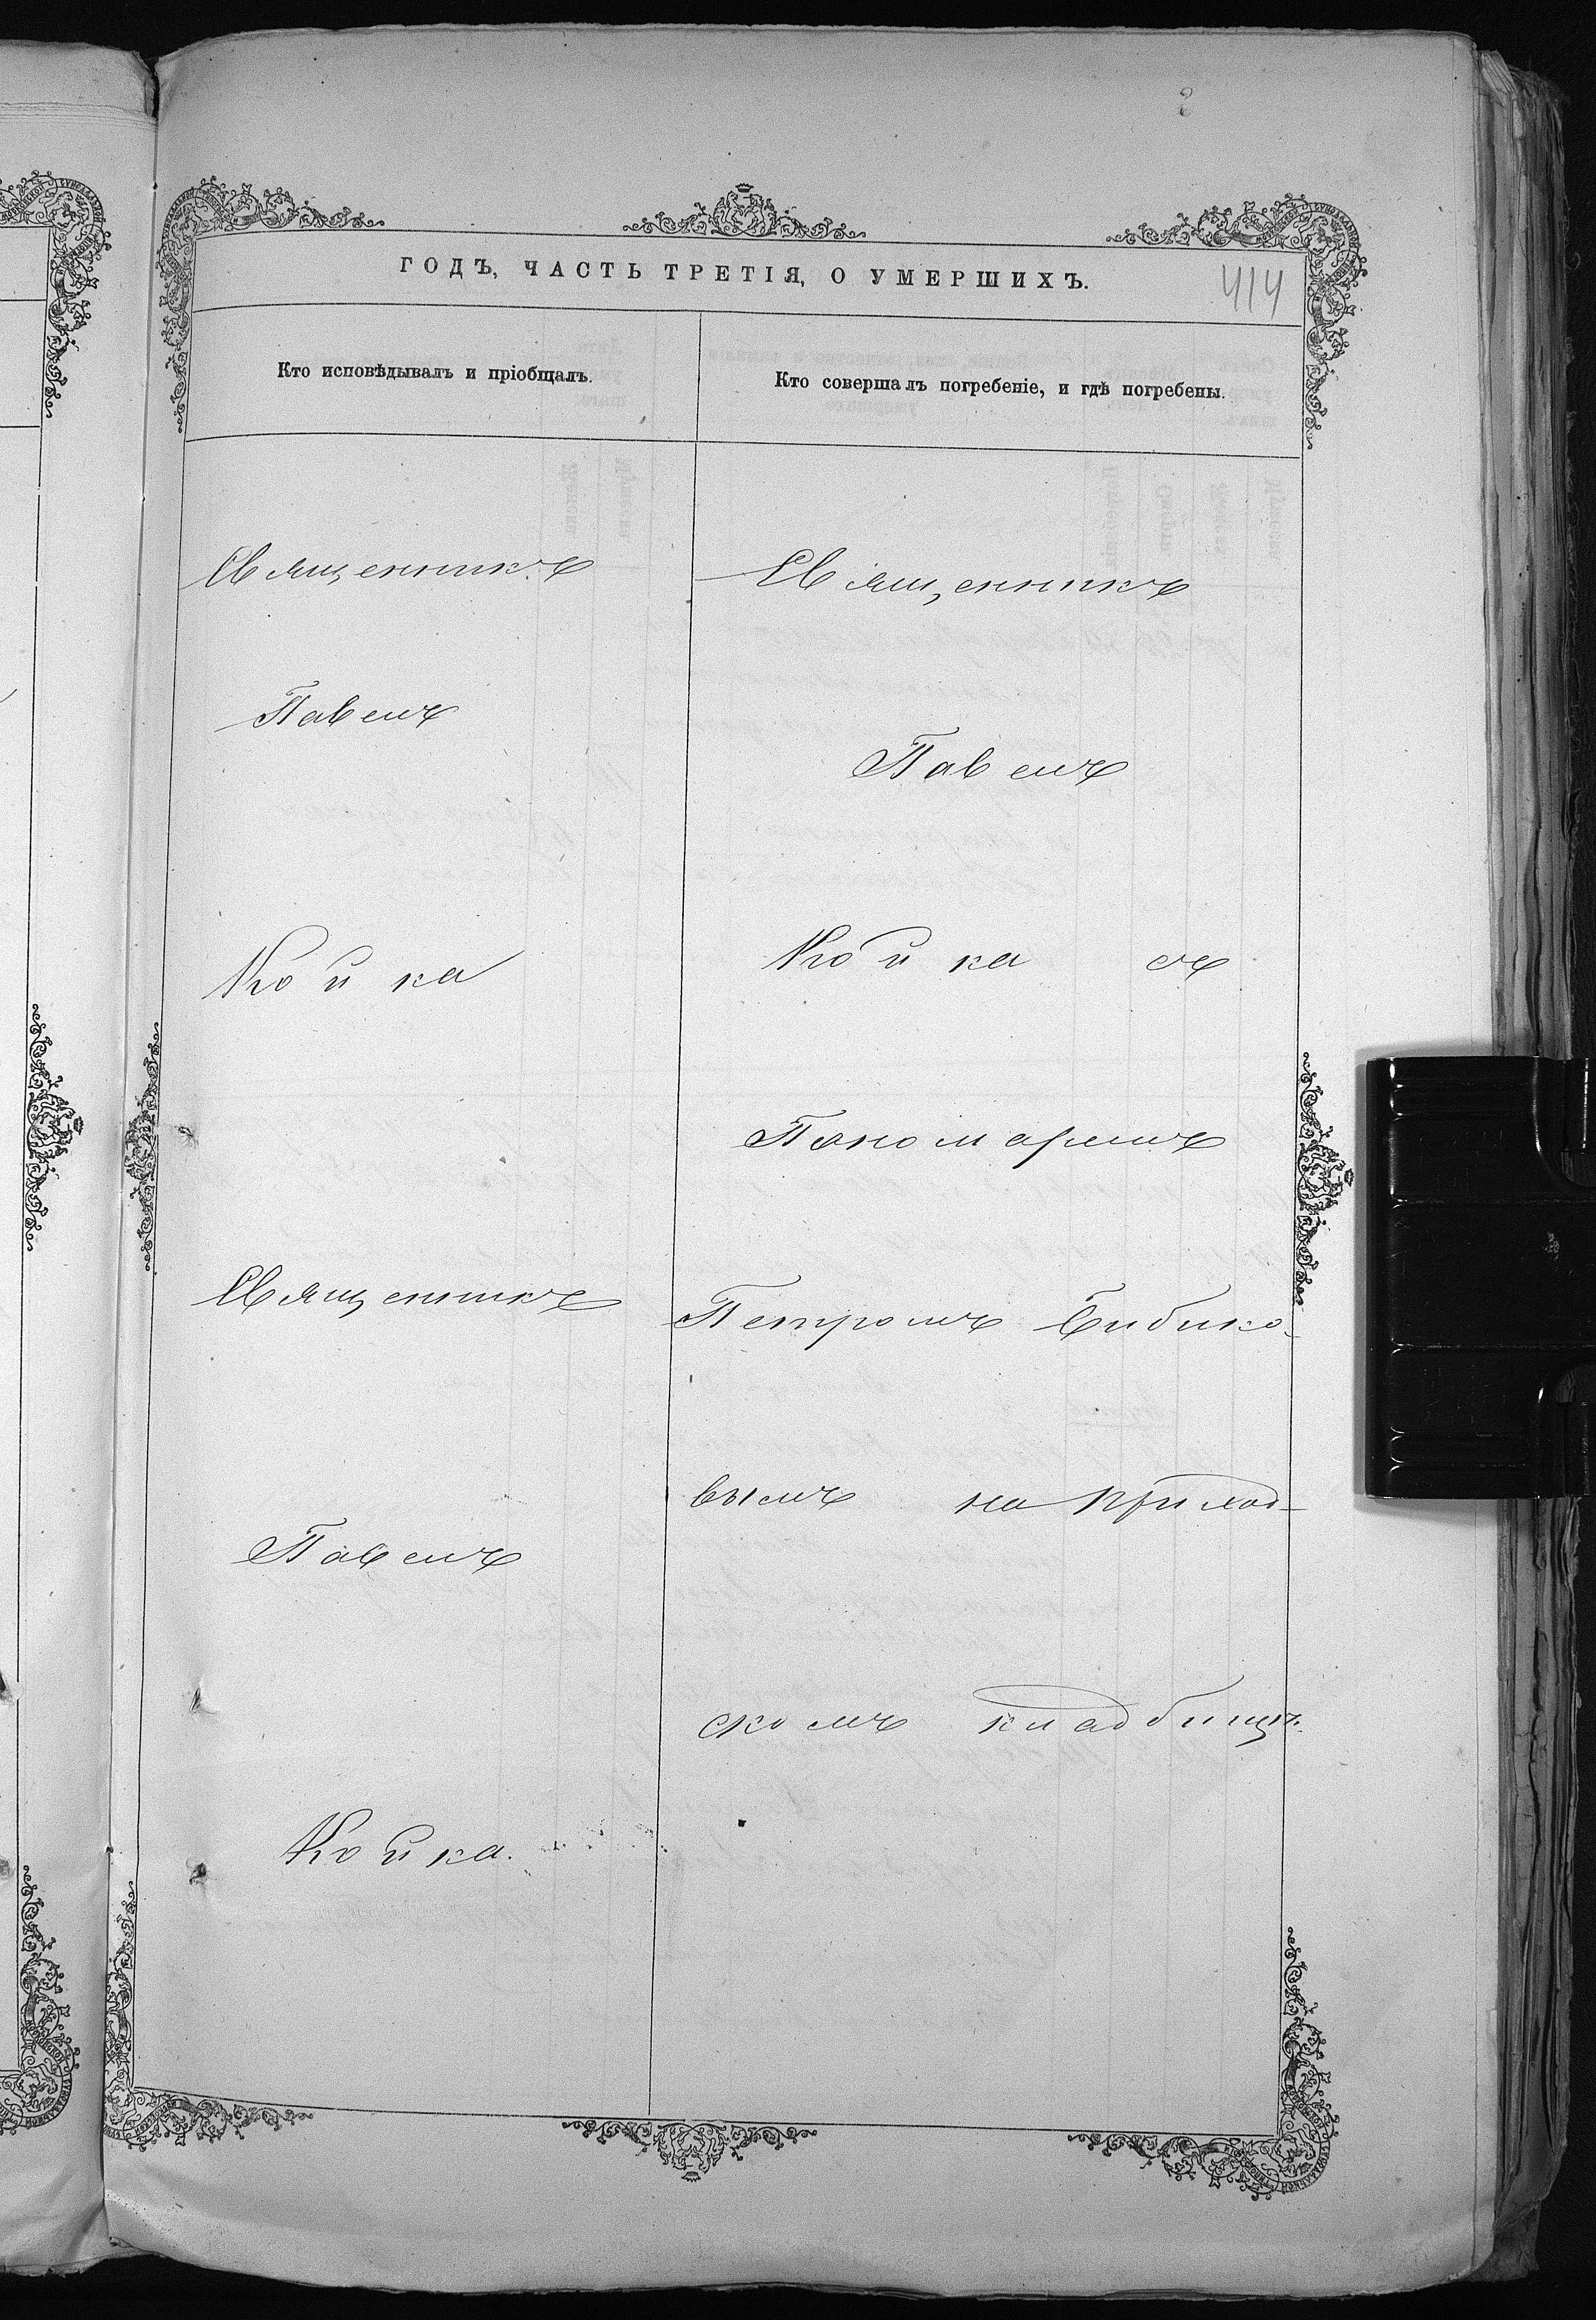 ГОДЪ, ЧАСТЬ ТРЕТІЯ, О УМЕРШИХЪ.
414
Кто исповѣдывалъ и пріобщалъ.
Священникъ
Павелъ
Койка
Священникъ
Павелъ
Койка.
Кто совершалъ погребеніе, и гдѣ погребены.
Священникъ
Павелъ
Койка съ
Пономаремъ
Петромъ Бибико-
вымъ на приход-
скомъ кладбищѣ.